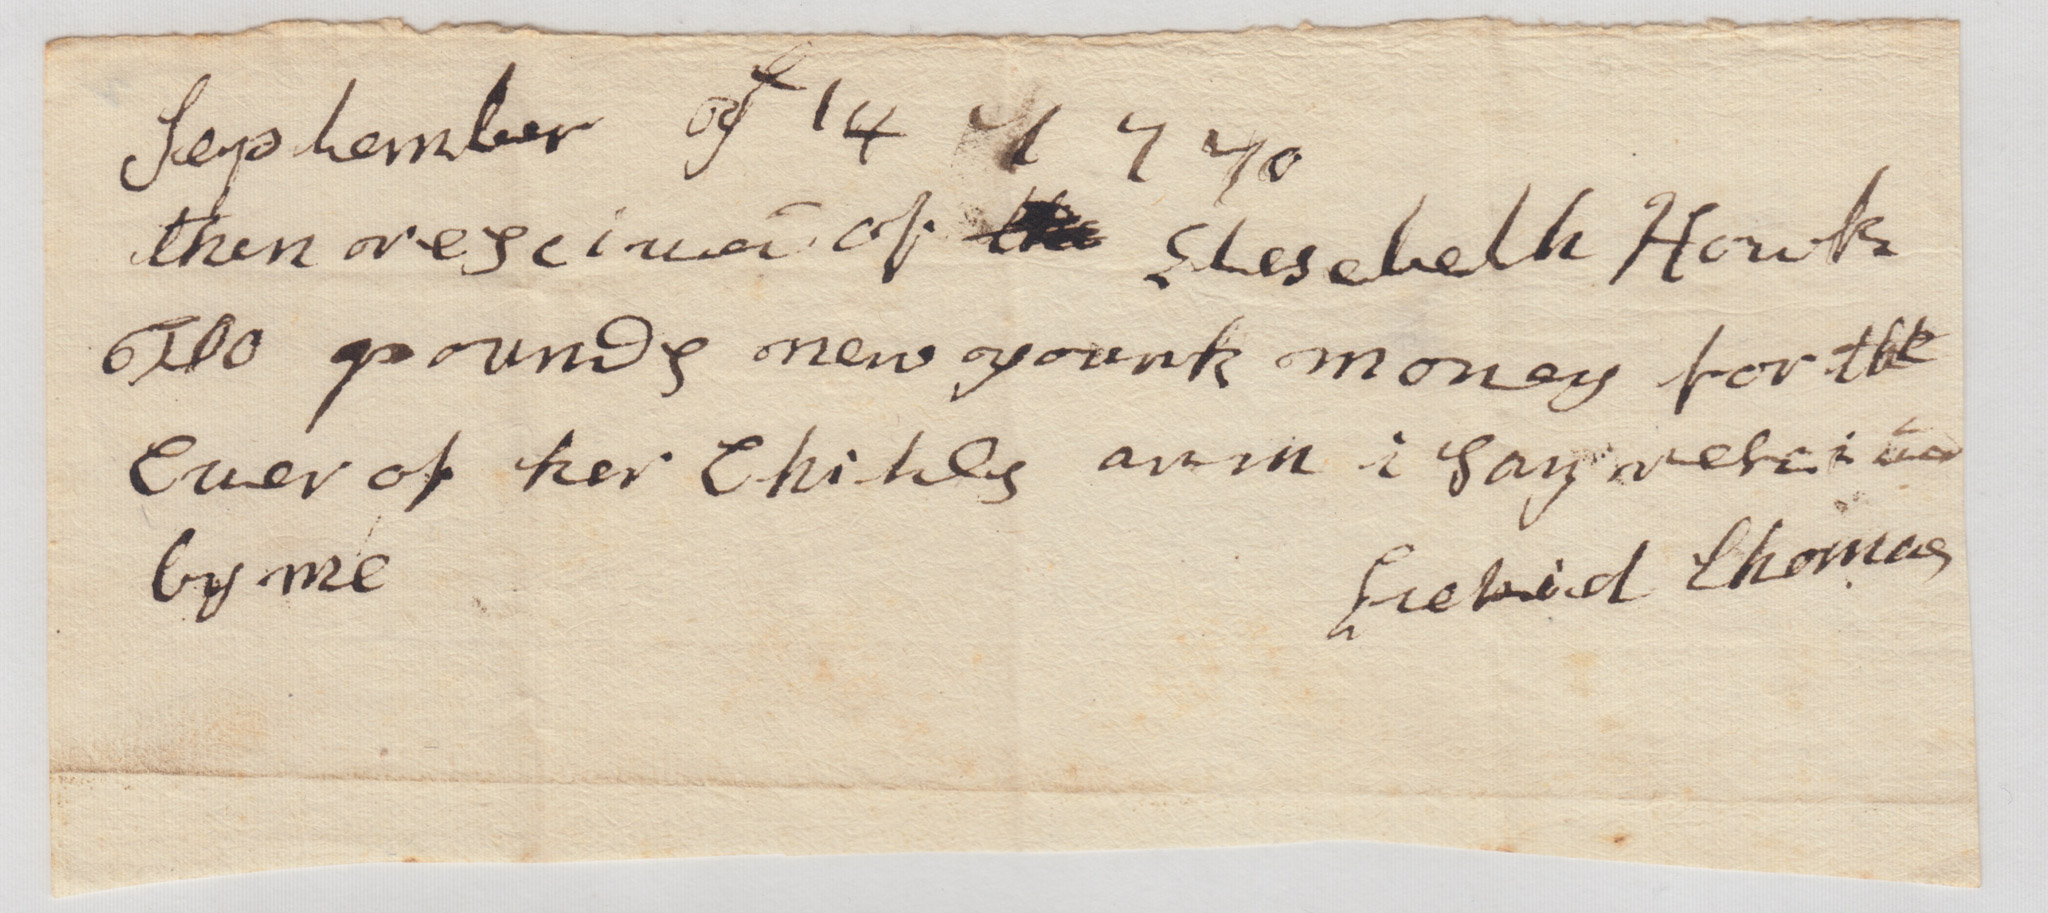 September ye 14 1770
then resciued of Elesebeth Houk
two pounds new yourk money for the
Cuer of her Childs arm i say resciued
by me Ezekiel Thomas